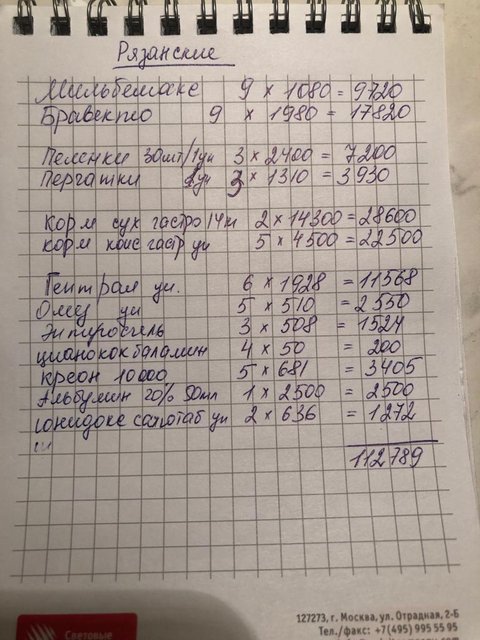 Рязанские
Мильбемакс 9 × 1080 = 9720
Бравекто 9 × 1980 = 17820
Пеленки 30шт/1уп 3 × 2400 = 7200
Перчатки уп 3 × 1310 = 3930
Корм сух гастро 14кг 2 × 14300 = 28600
корм конс гастр уп 5 × 4500 = 22500
Гептрал уп. 6 × 1928 = 11568
Омез уп 5 × 510 = 2550
Энтеросгель 3 × 508 = 1524
цианокобаламин 4 × 50 = 200
креон 10000 5 × 681 = 3405
Альбумин 20% 50мл 1 × 2500 = 2500
юнидокс солютаб уп 2 × 636 = 1272
112789
127273, г. Москва, ул. Отрадная, 2-Б
Световые Тел./факс: +7(495) 995 55 95